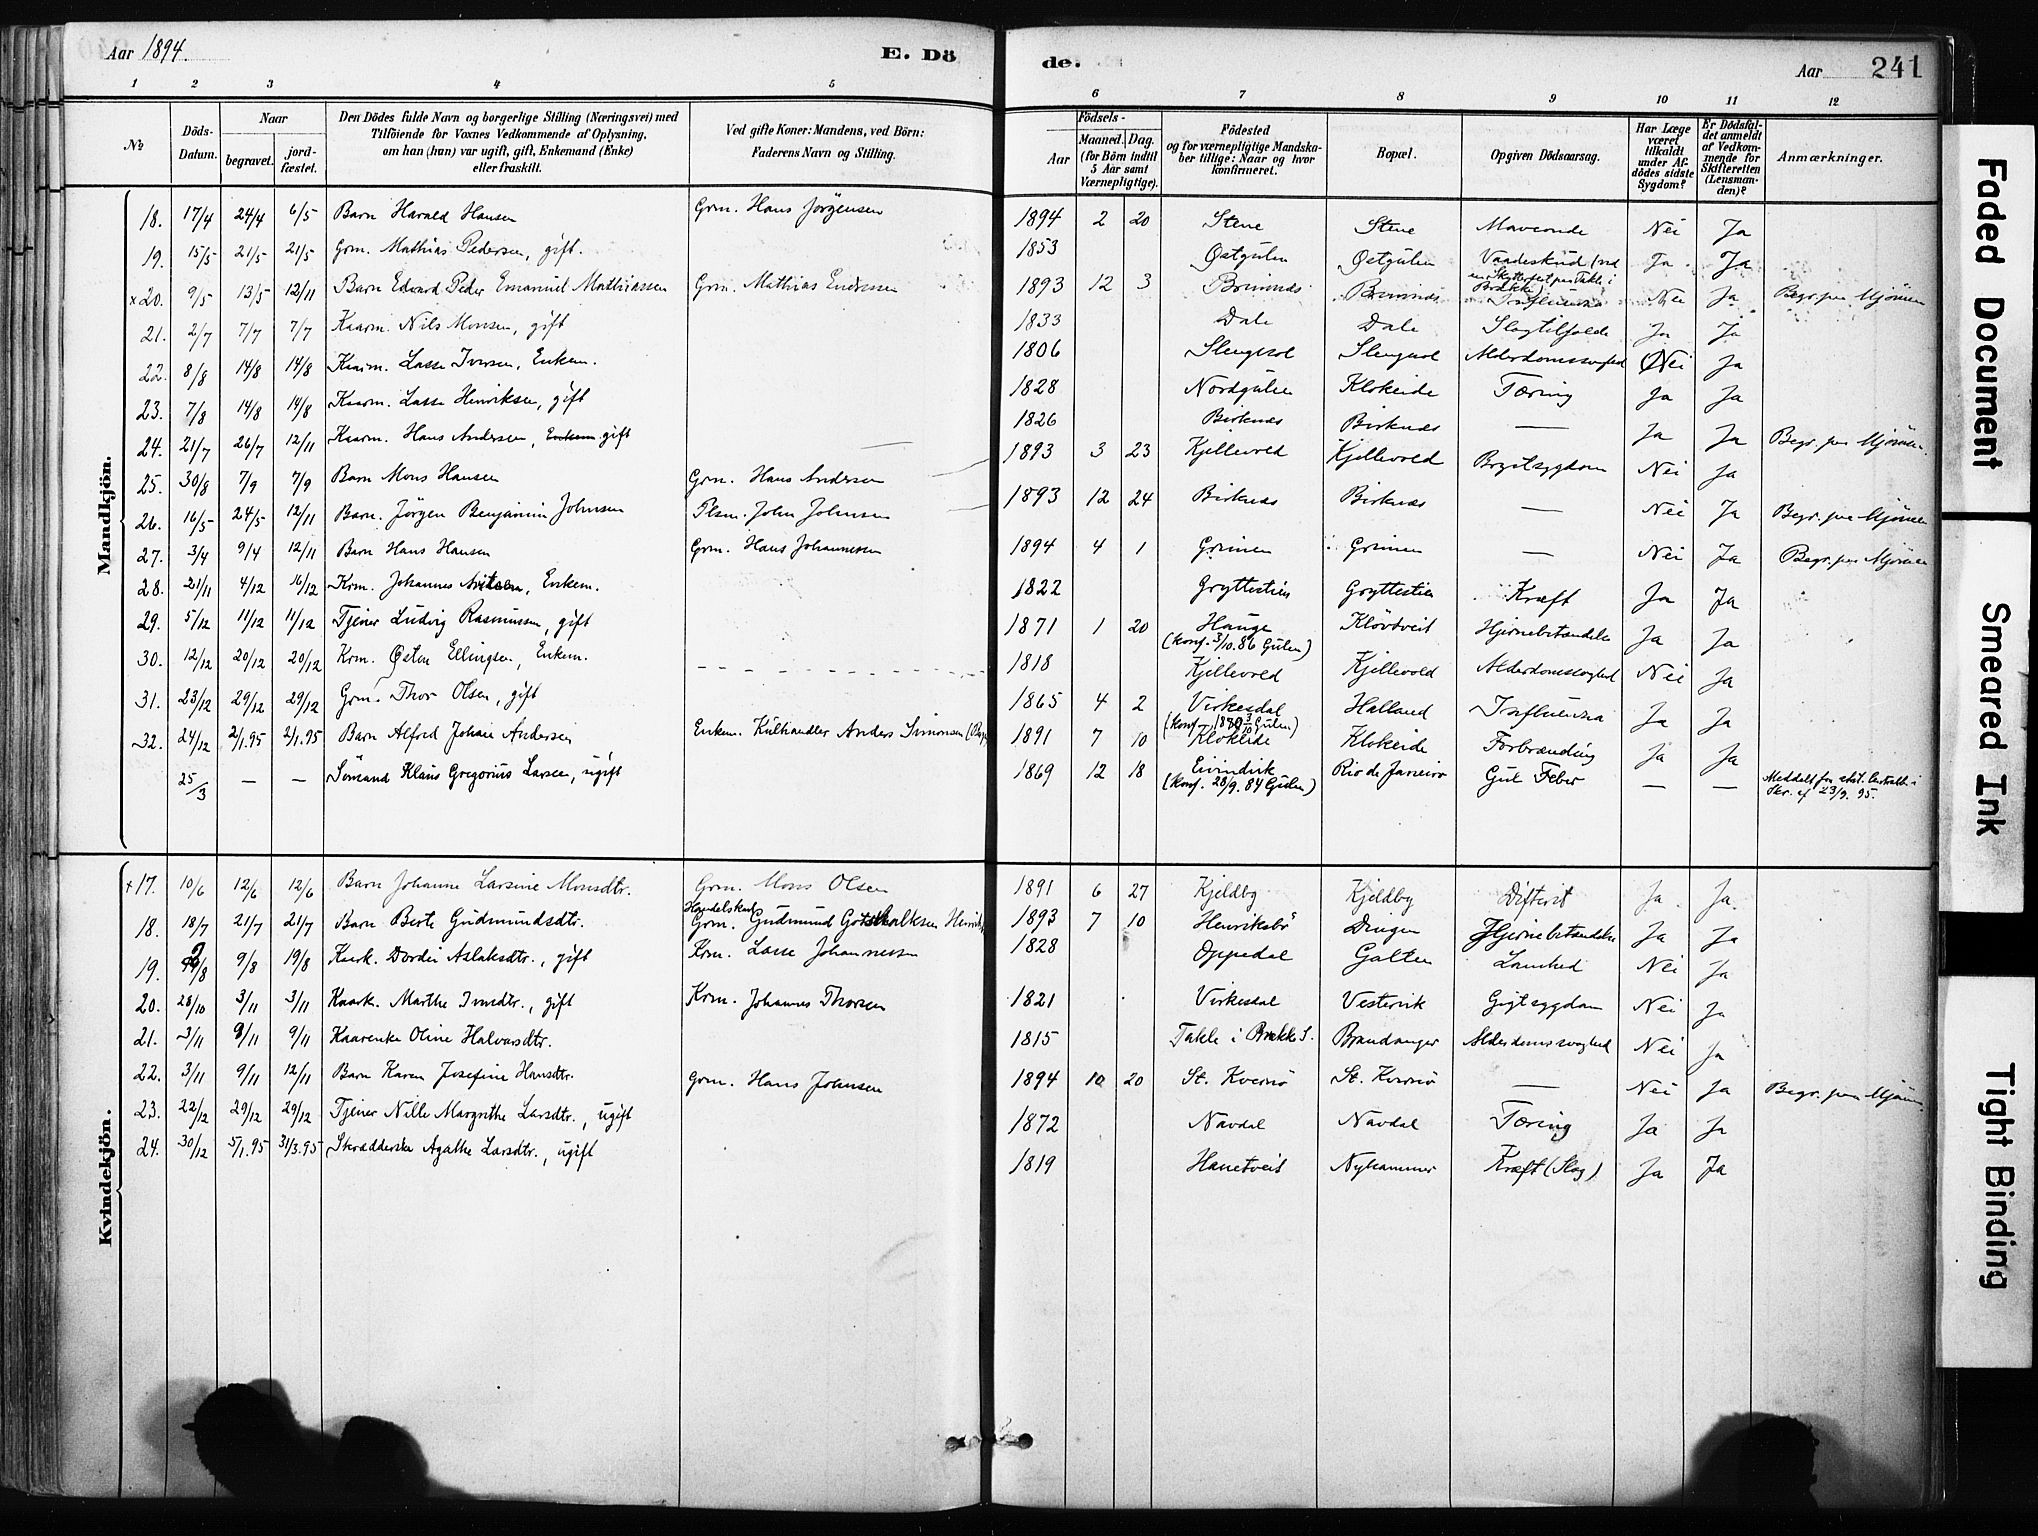 Aar 1894. E. Dö de. Aar 241
1 2 3 4 5 6 7 8 9 10 11 12
No
Döds-Datum.
Naar
begravet.
jordfæstet.
Den Dödes fulde Navn og borgerlige Stilling (Næringsvei) med
Tilföiende for Voxnes Vedkommende af Oplysning,
om han (hun) var ugift, gift, Enkemand (Enke)
eller fraskilt.
Ved gifte Koner: Mandens, ved Börn:
Faderens Navn og Stilling.
Födsels-
Aar
Maaned. Dag.
(for Börn indtil
5 Aar samt
Værnepligtige).
Födested
og for værnepligtige Mandska-
ber tillige: Naar og hvor
konfirmeret.
Bopæl.
Opgiven Dödsaarsag.
Har Læge
været
tilkaldt
under Af-
dödes sidste
Sygdom?
Er Dödsfal-
det anmeldt
af Vedkom-
mende for
Skifteretten
(Lensman-
den)?
Anmærkninger.
Mandkjön.
18. 17/4 24/4 6/5 Barn Harald Hansen Grm. Hans Jörgensen 1894 2 20 Stene Stene Maveonde Nei Ja
19. 15/5 21/5 21/5 Grm. Mathias Pedersen, gift. 1853 Østgulen Østgulen Vaadeskud (ved en Skytterfest paa Takle i Brække) Ja Ja
x20. 9/5 13/5 12/11 Barn Edvard Peder Emanuel Mathiassen Grm. Mathias Endresen 1893 12 3 Brimnæs Brimnæs Influenza Nei Ja Begr. paa Mjömen
21. 2/7 7/7 7/7 Kaarm. Nils Monsen, gift 1833 Dale Dale Slagtilfælde Ja Ja
22. 8/8 14/8 14/8 Kaarm. Lasse Iversen, Enkem. 1806 Slengesol Slengesol Alderdomssvaghed Nei Ja
23. 7/8 14/8 14/8 Kaarm. Lasse Henriksen, gift 1828 Nordgulen Klokeide Tæring Ja Ja
24. 21/7 26/7 12/11 Kaarm. Hans Andersen, Enkem. gift 1826 Birknæs Birknæs — Ja Ja Begr. paa Mjömen
25. 30/8 7/9 7/9 Barn Mons Hansen Grm. Hans Andersen 1893 3 23 Kjellevold Kjellevold Brystsygdom Nei Ja
26. 16/5 24/5 12/11 Barn. Jörgen Benjamin Johnsen Plsm. John Johnsen 1893 12 24 Birknæs Birknæs — Nei Ja Begr. paa Mjömen
27. 3/4 9/4 12/11 Barn Hans Hansen Grm. Hans Johannesen 1894 4 1 Grinen Grinen — Nei Ja Begr. paa Mjömen
28. 21/11 4/12 16/12 Krm. Johannes , Enkem. 1822 Gryttestien Gryttestien Kræft Ja Ja
29. 5/12 11/12 11/12 Tjener Ludvig Rasmussen, gift 1871 1 20 Hauge (konf. 3/10. 86 Gulen) Klövtveit Hjernebetændelse Ja Ja
30. 12/12 20/12 20/12 Krm. Østen Ellingsen, Enkem. 1818 Kjellevold Kjellevold Alderdomssvaghed Nei Ja
31. 23/12 29/12 29/12 Grm. Thor Olsen, gift 1865 4 2 Virkesdal (konf. Gulen) Halland Influenza Ja Ja
32. 24/12 2/1.95 2/1.95 Barn Alfred Johan Andersen Enkem. Kulhandler Anders Simonsen 1891 7 10 Klokeide Klokeide Forbrænding Ja Ja
25/3 — — Sömand Klaus Gregorius Larsen, ugift 1869 12 18 Eivindvik (konf. 28/9. 84 Gulen) Rio de Janeiro Gul Feber — — Meddelt fra stat. Centralb. i Skr. af 23/9. 95.
Kvindekjön.
x17. 10/6 12/6 12/6 Barn Johanne Larsine Monsdtr. Grm. Mons Olsen 1891 6 27 Kjeldby Kjeldby Difterit Ja Ja
18. 18/7 21/7 21/7 Barn Berte Gudmundsdtr. Handelskarl Grm. Gudmund Gotskalksen 1893 7 10 Henriksbö Dingen Hjernebetændelse Ja Ja
19. 2/8 9/8 19/8 Kaark. Dordei Aslaksdtr., gift Krm. Lasse Johannessen 1828 Oppedal Galten Lamhed Nei Ja
20. 28/10 3/11 3/11 Kaark. Marthe Ivarsdtr., gift Krm. Johannes Thorsen 1821 Virkesdal Vestervik Gigtsygdom Nei Ja
21. 3/11 9/11 9/11 Kaarenke Oline Halvarsdtr. 1815 Takle i Brække S. Brandanger Alderdomssvaghed Nei Ja
22. 3/11 9/11 12/11 Barn Karen Josefine Hansdtr. Grm. Hans Johnsen 1894 10 20 St. Kvernö St. Kvernö — Nei Ja Begr. paa Mjömen
23. 22/12 29/12 29/12 Tjener Nille Margrethe Larsdtr., ugift 1872 Nævdal Nævdal Tæring Ja Ja
24. 30/12 5/1.95 31/3.95 Skrædderske Agathe Larsdtr., ugift 1819 Hanetveit Nyhammer Kræft (Slag) Ja Ja
Faded Document
Smeared Ink
Tight Binding